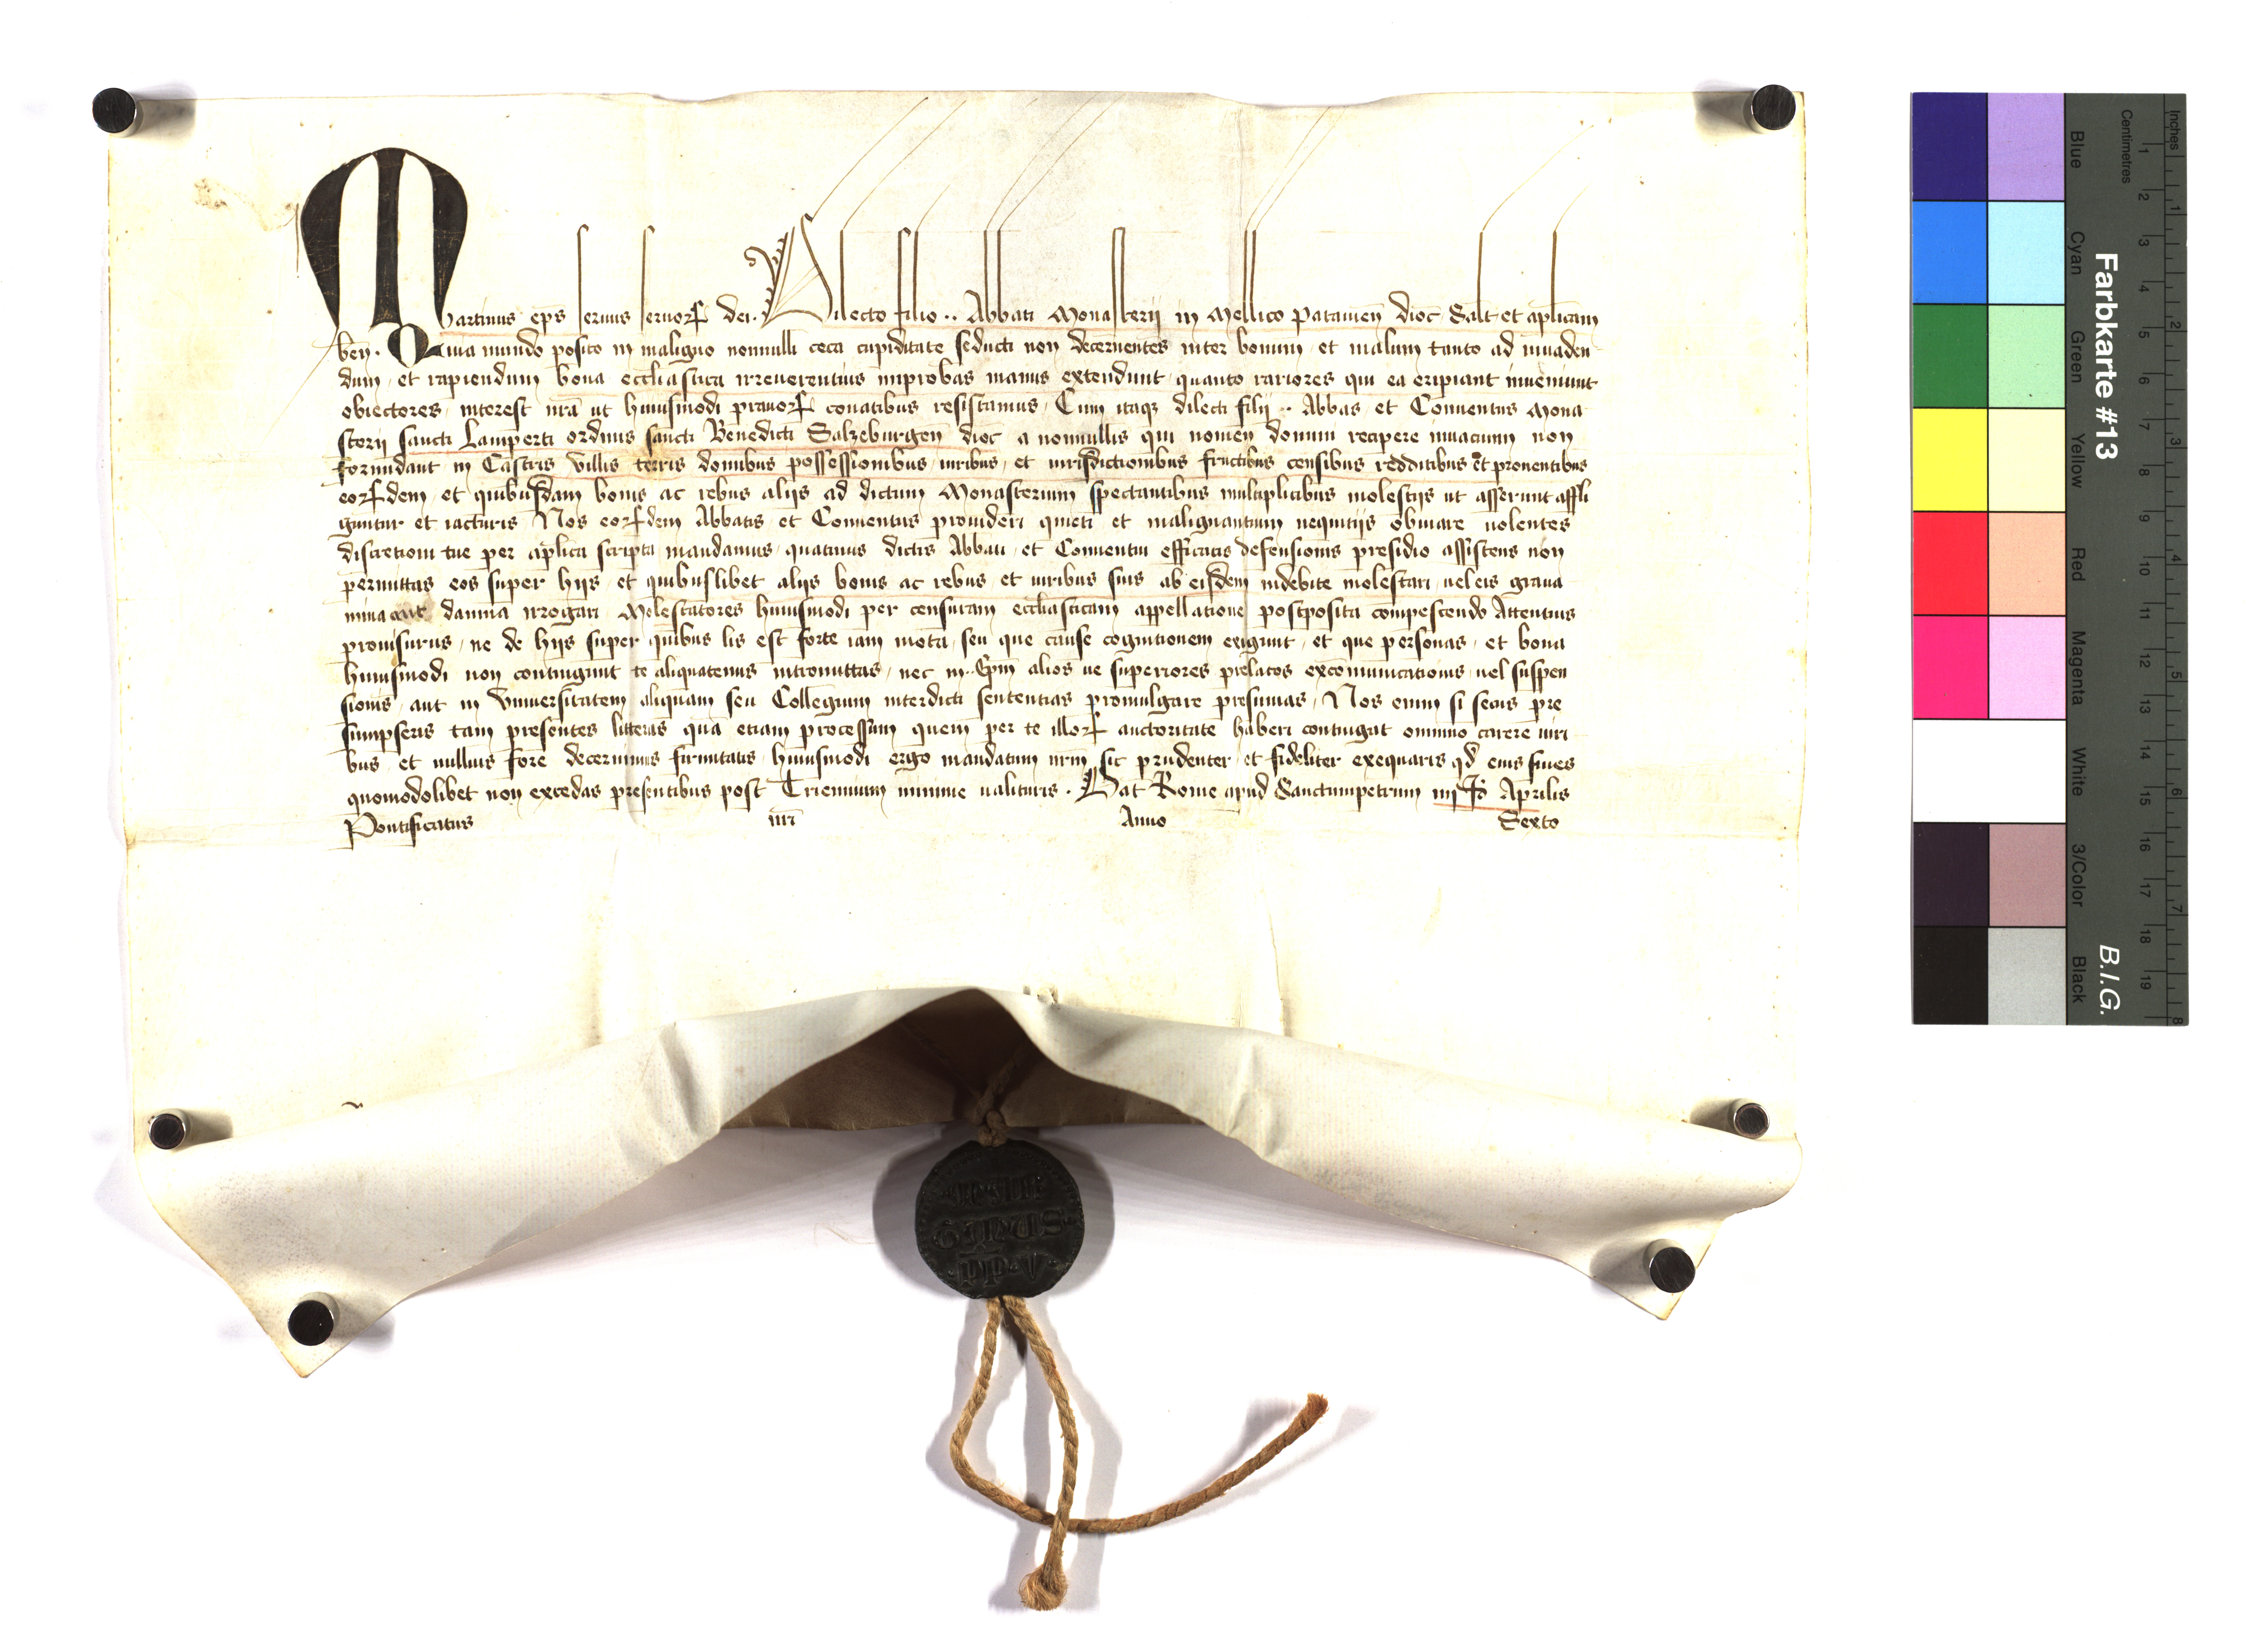 Martinus ep̄s seruus seruoꝝ dei. Dilecto filio .. Abbati Monasterii in Mellico Patauien̄ dioc̄ Salt̄ et ap̄licam
ben̄. Quia mundo posito in maligno nonnulli ceca cupiditate seducti non decernentes inter bonum et malum tanto ad inuaden
dum et rapiendum bona eccl̄iastica irreuerentius improbas manus extendunt quanto rariores qui ea eripiant inueniunt
obiectores interest nr̄a ut huiusmodi prauoꝝ conatibus resistamus. Cum itaqꝫ dilecti filij .. Abbas et Conuentus Mona
sterij sancti Lamperti ordinis sancti Benedicti Salzeburgen̄ dioc̄ a nonnullis qui nomen domini recipere inuacuum non
formidant in Castris Villis terris domibus possessionibus iuribus et iurisdictionibus fructibus censibus redditibus et prouentibus
eoꝝdem et quibusdam bonis ac rebus alijs ad dictum Monasterium spectantibus multiplicibus molestijs ut asserunt affli
guntur et iacturis Nos eoꝝdem Abbatis et Conuentus prouideri quieti et malignantium nequitijs obuiare uolentes
discretioni tue per ap̄lica scripta mandamus quatinus dictis Abbati et Conuentui efficacis defensionis presidio assistens non
permittas eos super hijs et quibuslibet alijs bonis ac rebus et iuribus suis ab eisdem indebite molestari uel eis graua
mina aut damna irrogari Molestatores huiusmodi per censuram eccl̄iasticam appellatione postposita compescendo Attentius
prouisurus ne de hijs super quibus lis est forte iam mota seu que cause cognitionem exigunt et que personas et bona
huiusmodi non contingunt te aliquatenus intromittas nec in .. Ep̄m alios ue superiores prelatos excomunicationis uel suspen
sionis aut in Vniuersitatem aliquam seu Collegium interdicti sententias promulgare presumas Nos enim si secus pre
sumpseris tam presentes litteras quā etiam processum quem per te illoꝝ auctoritate haberi contingat omnino carere uiri
bus et nullius fore decernimus firmitatis huiusmodi ergo mandatum nrm̄ sic prudenter et fideliter exequaris qd̄ eius fines
quomodolibet non excedas presentibus post Triennium minime ualituris. Dat̄ Rome apud Sanctumpetrum iiij Id̄ Aprilis
Pontificatus nr̄i Anno Sexto
MAR
TINUS
PP V
Farbkarte #13
B.I.G.
Blue Cyan Green Yellow Red Magenta White 3/Color Black
Centimetres 1 2 3 4 5 6 7 8 9 10 11 12 13 14 15 16 17 18 19
Inches 1 2 3 4 5 6 7 8